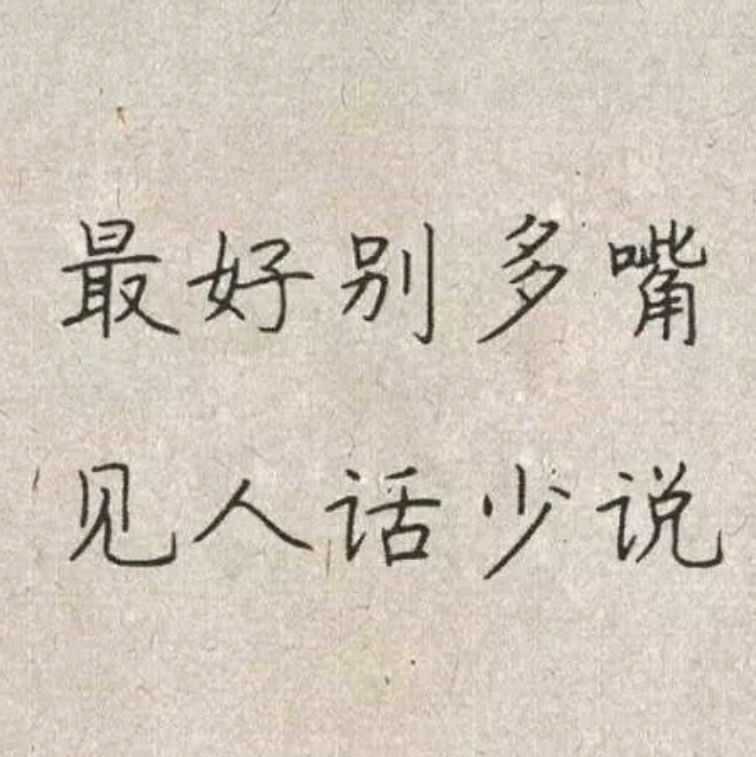 最好别多嘴
见人话少说